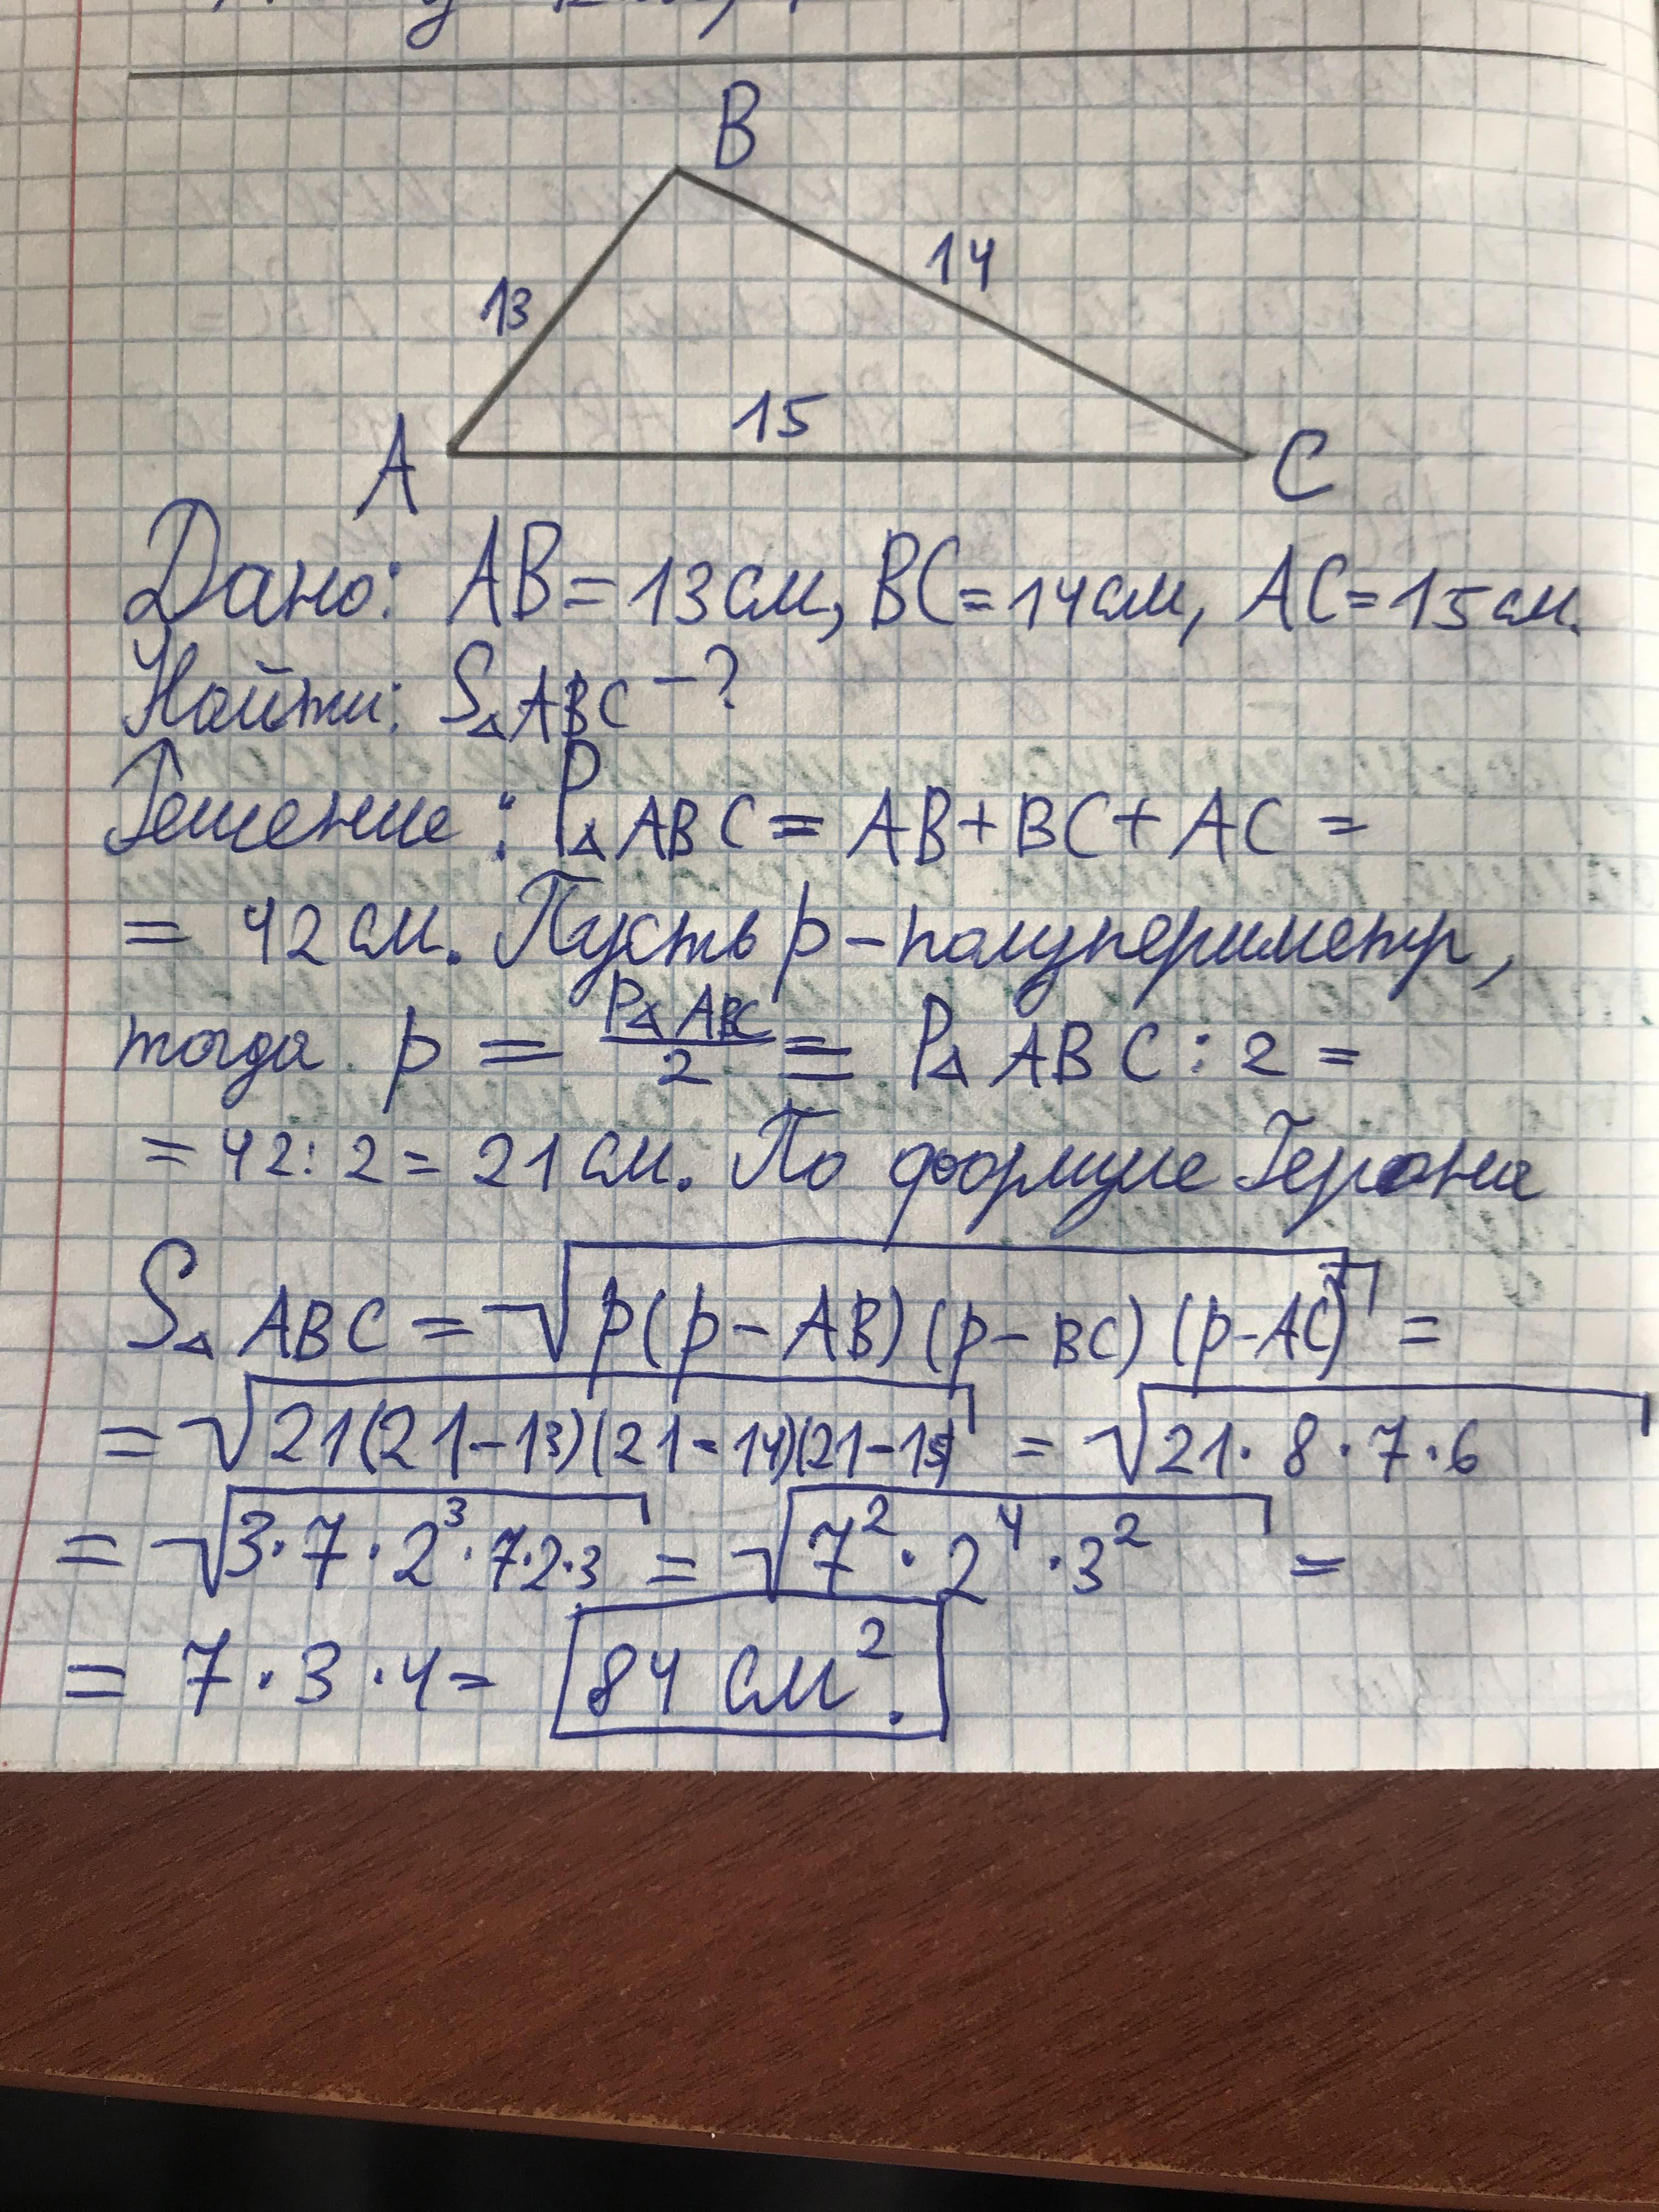 B
13
14
15
A
C
Дано: AB = 13 см, BC = 14 см, AC = 15 см.
Найти: S△ABC – ?
Решение: P△ABC = AB + BC + AC =
= 42 см. Пусть p – полупериметр,
тогда p = P△ABC/2 = P△ABC : 2 =
= 42 : 2 = 21 см. По формуле Герона
S△ABC = √p(p – AB)(p – BC)(p – AC) =
= √21(21 – 13)(21 – 14)(21 – 15) = √21 · 8 · 7 · 6
= √3 · 7 · 2³ · 7 · 2 · 3 = √7² · 2⁴ · 3² =
= 7 · 3 · 4 = 84 см².